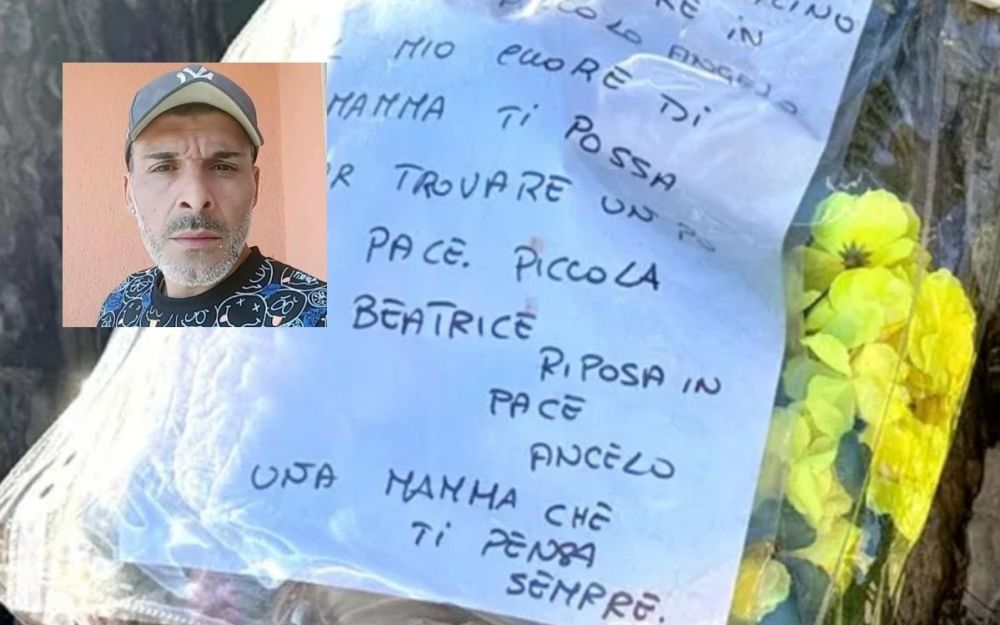 RE IN
PICCOLO ANGELO
MIO CUORE DI
MAMMA TI POSSA
TROVARE UN PO
PACE. PICCOLA
BEATRICE
RIPOSA IN
PACE
ANGELO
UNA MAMMA CHE
TI PENSA
SEMPRE.
NY